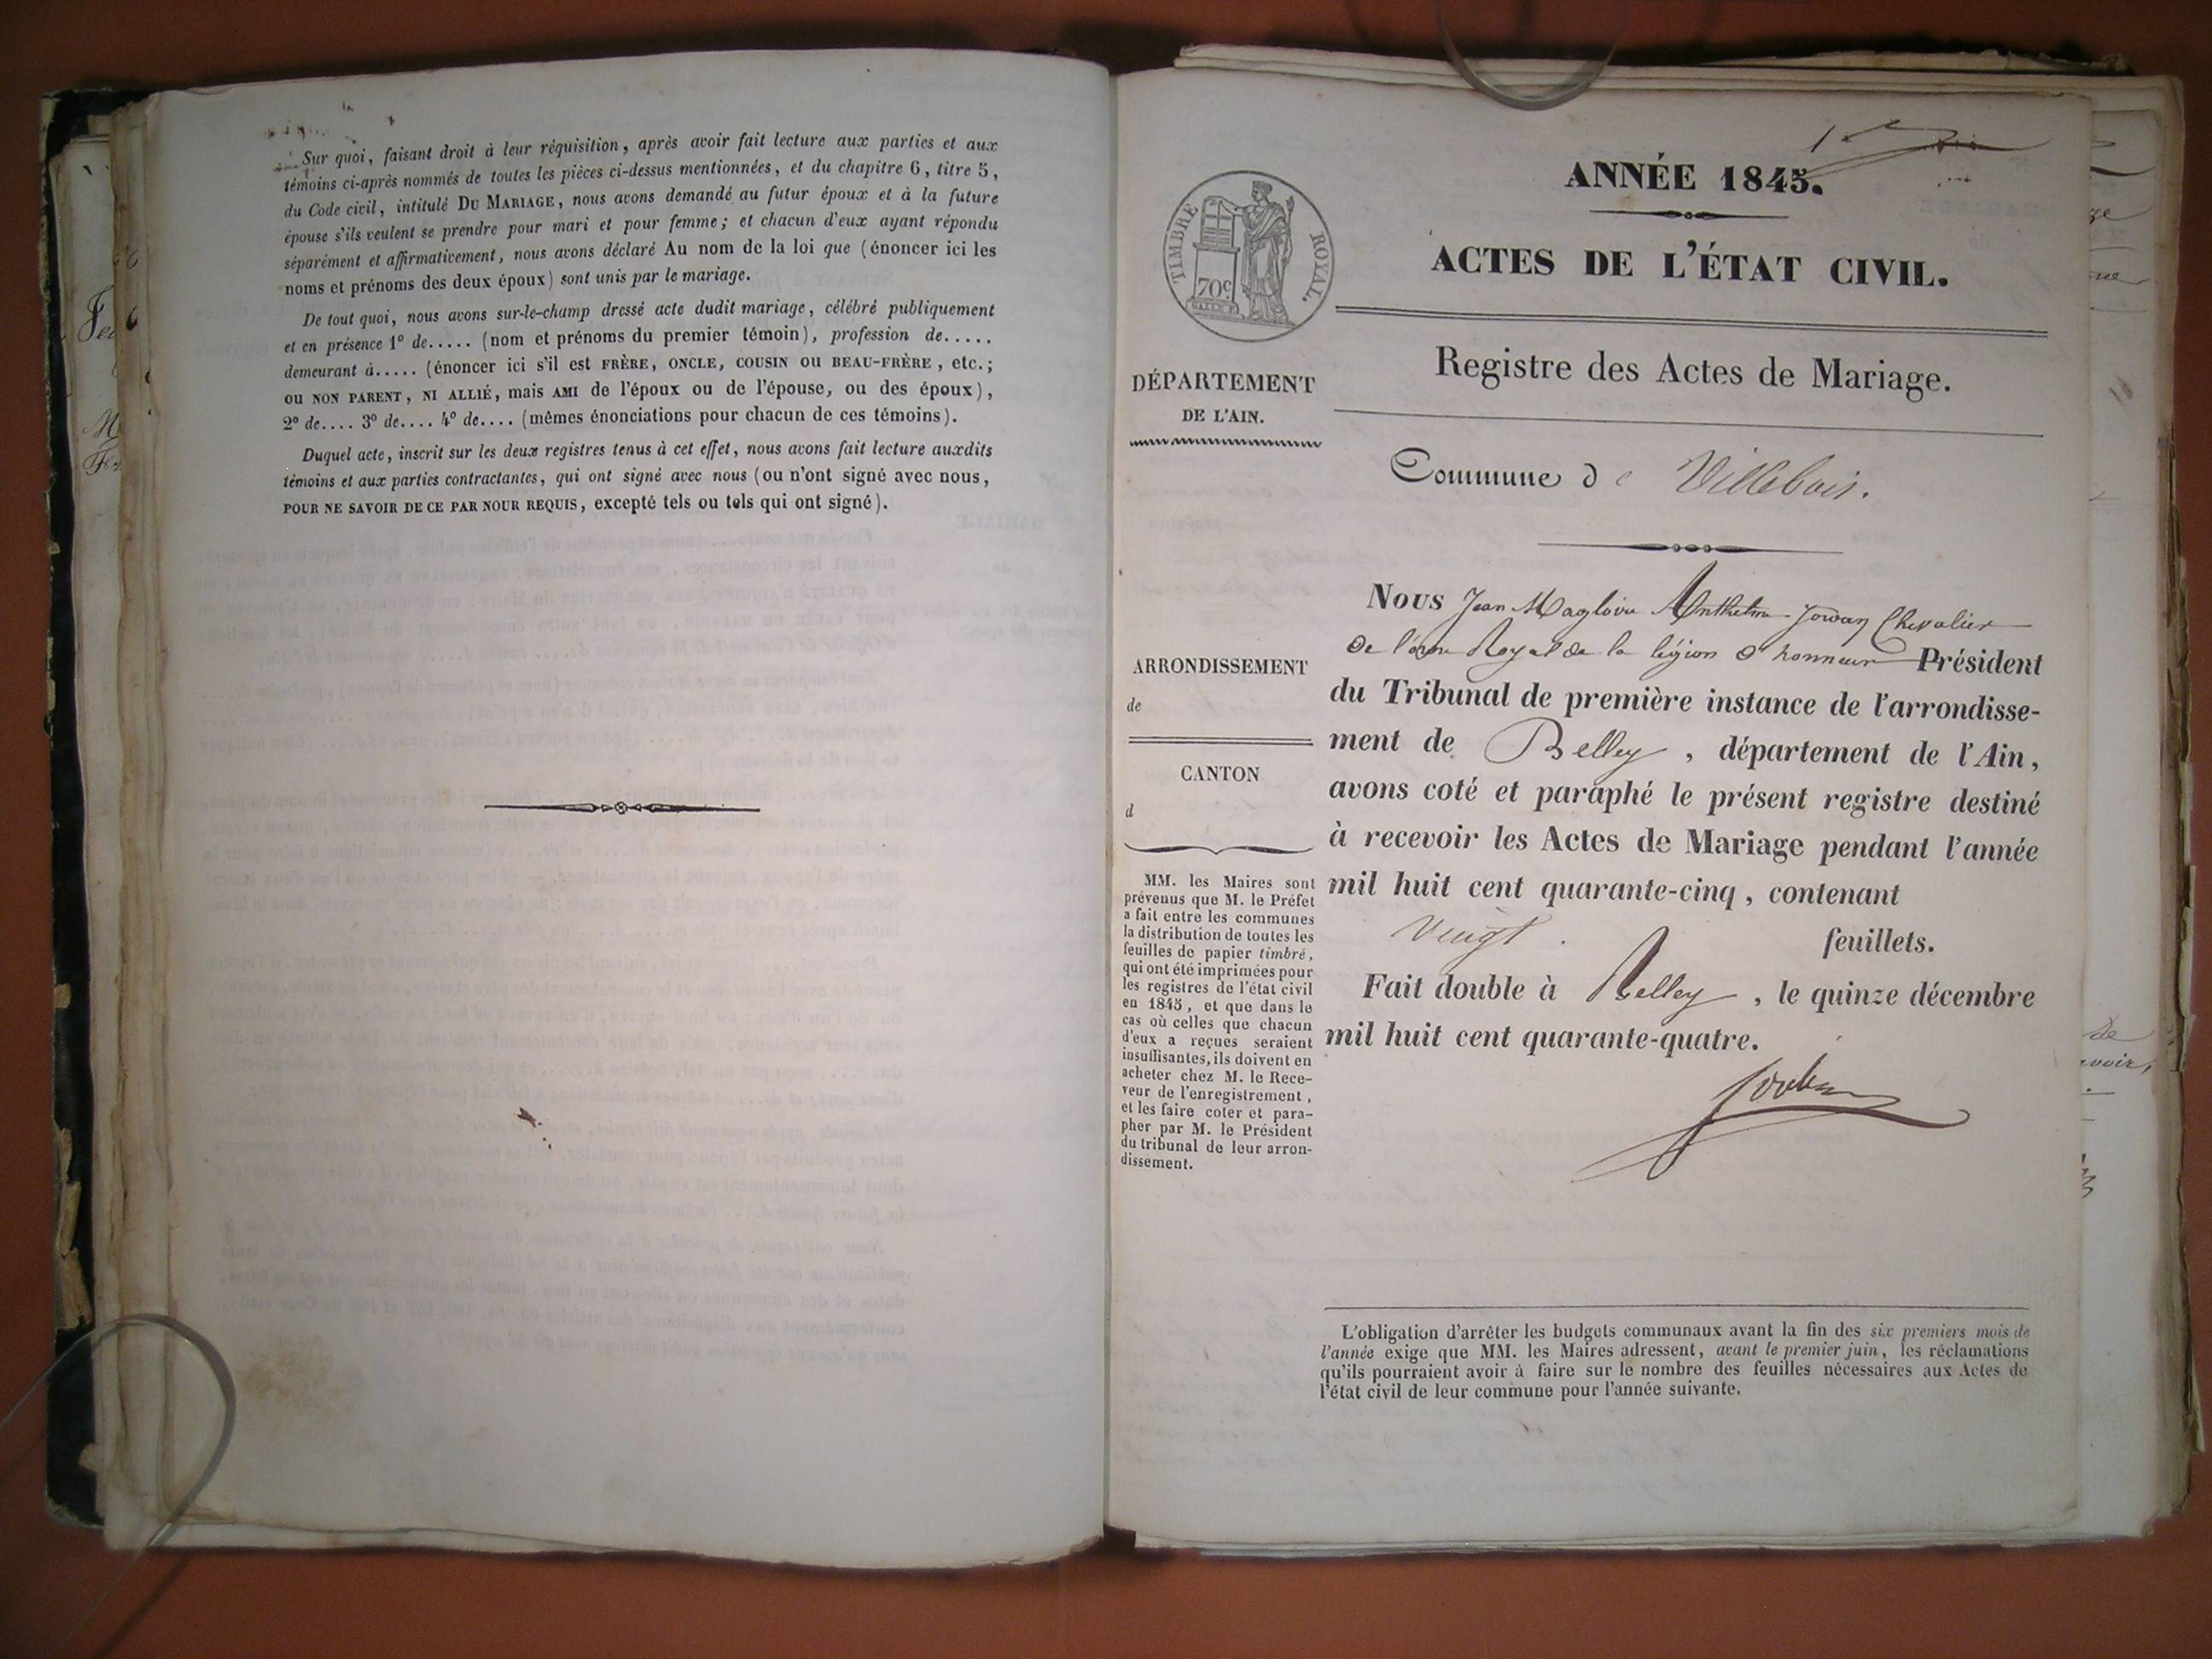 Sur quoi, faisant droit à leur réquisition, après avoir fait lecture aux parties et aux
témoins ci-après nommés de toutes les pièces ci-dessus mentionnées, et du chapitre 6, titre 5,
du Code civil, intitulé DU MARIAGE, nous avons demandé au futur époux et à la future
épouse s'ils veulent se prendre pour mari et pour femme; et chacun d'eux ayant répondu
séparément et affirmativement, nous avons déclaré Au nom de la loi que (énoncer ici les
noms et prénoms des deux époux) sont unis par le mariage.
De tout quoi, nous avons sur-le-champ dressé acte dudit mariage, célébré publiquement
et en présence 1º de..... (nom et prénoms du premier témoin), profession de.....
demeurant à..... (énoncer ici s'il est FRÈRE, ONCLE, COUSIN OU BEAU-FRÈRE, etc.;
OU NON PARENT, NI ALLIÉ, mais AMI de l'époux ou de l'épouse, ou des époux),
2º de.... 3º de.... 4º de.... (mêmes énonciations pour chacun de ces témoins).
Duquel acte, inscrit sur les deux registres tenus à cet effet, nous avons fait lecture auxdits
témoins et aux parties contractantes, qui ont signé avec nous (ou n'ont signé avec nous,
POUR NE SAVOIR DE CE PAR NOUR REQUIS, excepté tels ou tels qui ont signé).
ANNÉE 1845.
ACTES DE L'ÉTAT CIVIL.
TIMBRE ROYAL.
70c
Registre des Actes de Mariage.
DÉPARTEMENT
DE L'AIN.
Commune de Villebois.
ARRONDISSEMENT
de
CANTON
d
MM. les Maires sont
prévenus que M. le Préfet
a fait entre les communes
la distribution de toutes les
feuilles de papier timbré,
qui ont été imprimées pour
les registres de l'état civil
en 1845, et que dans le
cas où celles que chacun
d'eux a reçues seraient
insuffisantes, ils doivent en
acheter chez M. le Rece-
veur de l'enregistrement,
et les faire coter et para-
pher par M. le Président
du tribunal de leur arron-
dissement.
Nous Jean Magloire Anthelme Chevalier
De l'ordre Royal de la légion d'honneur Président
du Tribunal de première instance de l'arrondisse-
ment de Belley, département de l'Ain,
avons coté et paraphé le présent registre destiné
à recevoir les Actes de Mariage pendant l'année
mil huit cent quarante-cinq, contenant
Vingt feuillets.
Fait double à Belley, le quinze décembre
mil huit cent quarante-quatre.
L'obligation d'arrêter les budgets communaux avant la fin des six premiers mois de
l'année exige que MM. les Maires adressent, avant le premier juin, les réclamations
qu'ils pourraient avoir à faire sur le nombre des feuilles nécessaires aux Actes de
l'état civil de leur commune pour l'année suivante.